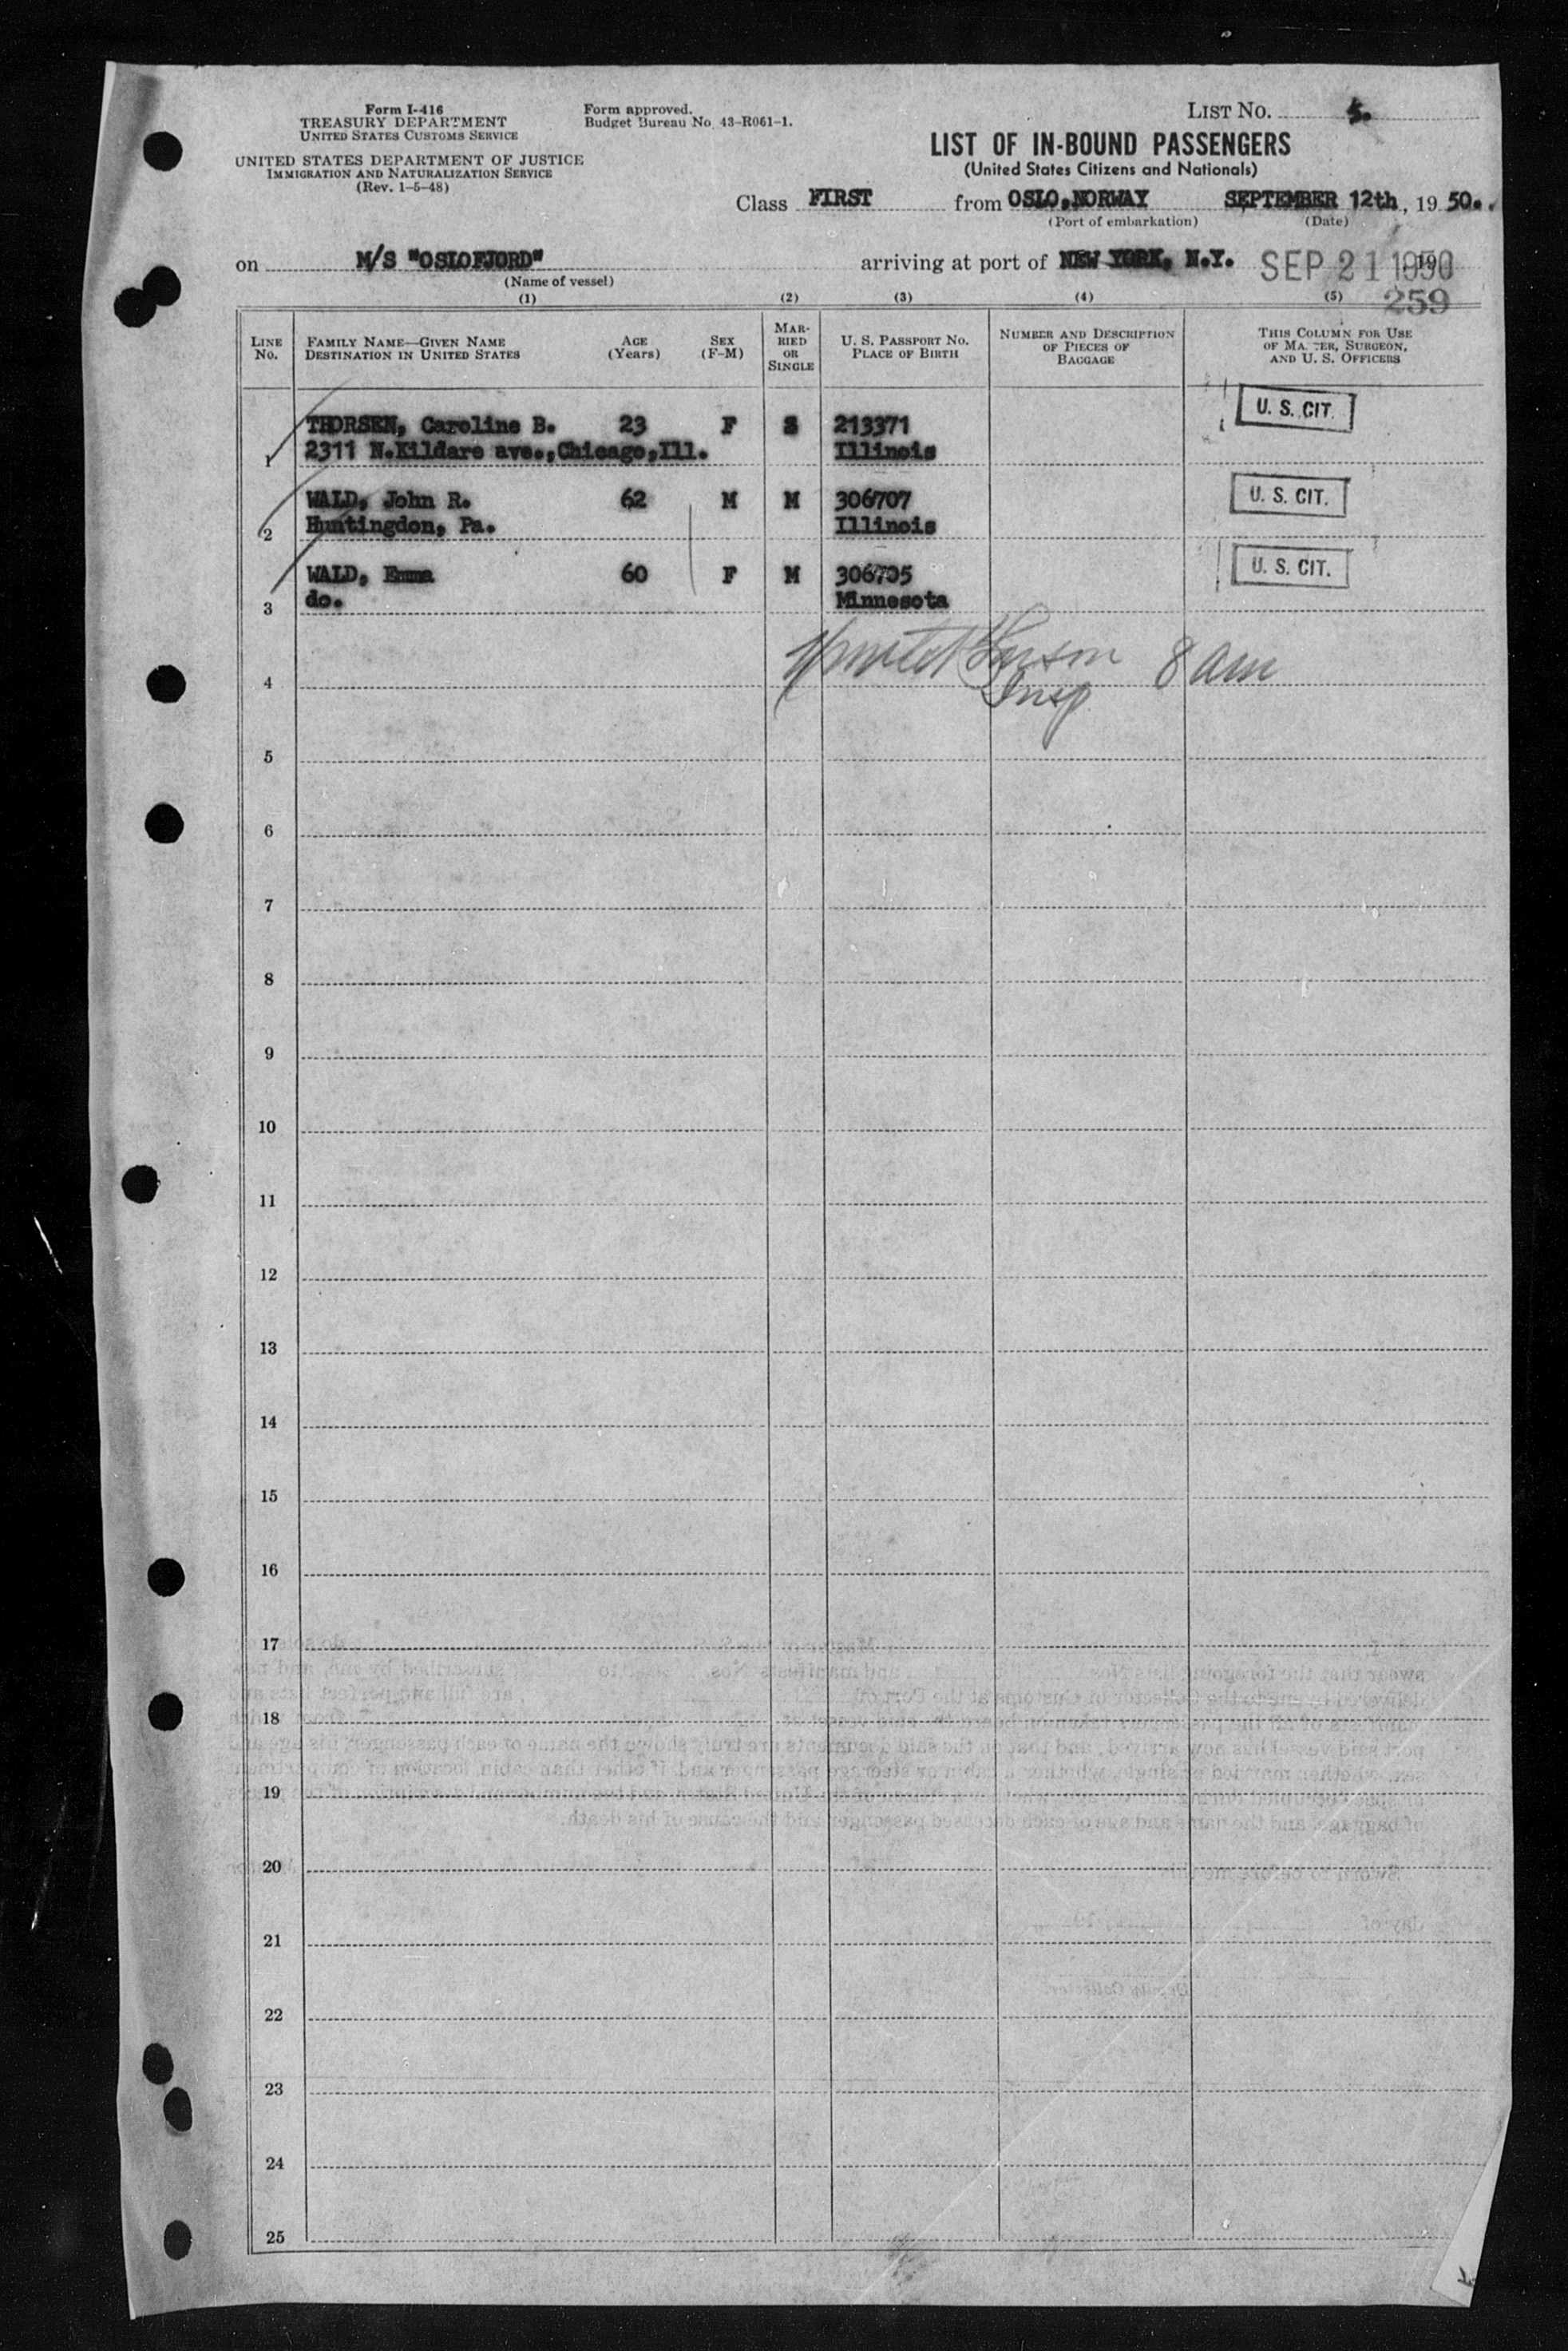 Form I-416
TREASURY DEPARTMENT
UNITED STATES CUSTOMS SERVICE
UNITED STATES DEPARTMENT OF JUSTICE
IMMIGRATION AND NATURALIZATION SERVICE
(Rev. 1-5-48)
Form approved.
Budget Bureau No. 43-R061-1.
LIST NO. 5.
LIST OF IN-BOUND PASSENGERS
(United States Citizens and Nationals)
Class FIRST from OSLO,NORWAY SEPTEMBER 12th, 19 50..
(Port of embarkation) (Date)
on M/S "OSLOFJORD" arriving at port of NEW YORK, N.Y. SEP 21 1950
(Name of vessel)
(1) (2) (3) (4) (5) 259
LINE No. FAMILY NAME—GIVEN NAME DESTINATION IN UNITED STATES AGE (Years) SEX (F-M) MARRIED OR SINGLE U. S. PASSPORT NO. PLACE OF BIRTH NUMBER AND DESCRIPTION OF PIECES OF BAGGAGE THIS COLUMN FOR USE OF MA TER, SURGEON, AND U. S. OFFICERS
THORSEN, Caroline B. 23 F S 213371 U. S. CIT.
1 2311 N.Kildare ave.,Chicago,Ill. Illinois
WALD, John R. 62 M M 306707 U. S. CIT.
2 Huntingdon, Pa. Illinois
WALD, Emma 60 F M 306705 U. S. CIT.
3 do. Minnesota
8 am
4 Insp
5
6
7
8
9
10
11
12
13
14
15
16
17
18
19
20
21
22
23
24
25